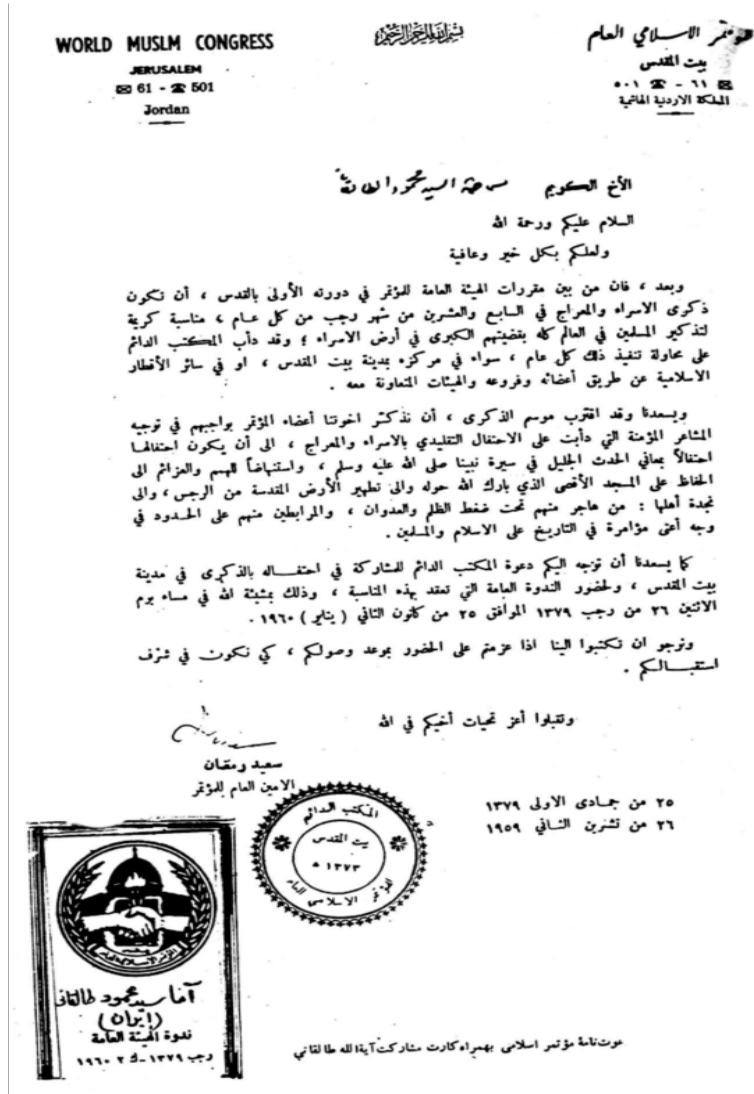 WORLD MUSLM CONGRESS
JERUSALEM
✉ 61 - ☎ 501
Jordan
بسم الله الرحمن الرحيم
المؤتمر الاسلامي العام
بيت المقدس
✉ ٦١ - ☎ ٥٠١
المملكة الاردنية الهاشمية
الأخ الكريم سماحة السيد محمود الطالقاني
السلام عليكم ورحمة الله
ولعلكم بكل خير وعافية
وبعد ، فان من بين مقررات الهيئة العامة للمؤتمر في دورته الأولى بالقدس ، أن تكون
ذكرى الاسراء والمعراج في السابع والعشرين من شهر رجب من كل عام ، مناسبة كريمة
لتذكير المسلمين في العالم كله بقضيتهم الكبرى في أرض الاسراء ؛ وقد دأب المكتب الدائم
على محاولة تنفيذ ذلك كل عام ، سواء في مركزه بمدينة بيت المقدس ، او في سائر الأقطار
الاسلامية عن طريق أعضائه وفروعه والهيئات المتعاونة معه .
ويسعدنا وقد اقترب موسم الذكرى ، أن نذكّر اخوتنا أعضاء المؤتمر بواجبهم في توجيه
المشاعر المؤمنة التي دأبت على الاحتفال التقليدي بالاسراء والمعراج ، الى أن يكون احتفالها
احتفالاً بمعاني الحدث الجليل في سيرة نبينا صلى الله عليه وسلم ، واستنهاضاً للهمم والعزائم الى
الحفاظ على المسجد الأقصى الذي بارك الله حوله والى تطهير الأرض المقدسة من الرجس ، والى
نجدة أهلها : من هاجر منهم تحت ضغط الظلم والعدوان ، والمرابطين منهم على الحدود في
وجه أعتى مؤامرة في التاريخ على الاسلام والمسلمين .
كما يسعدنا أن نوجه اليكم دعوة المكتب الدائم للمشاركة في احتفاله بالذكرى في مدينة
بيت المقدس ، ولحضور الندوة العامة التي تعقد بهذه المناسبة ، وذلك بمشيئة الله في مساء يوم
الاثنين ٢٦ من رجب ١٣٧٩ الموافق ٢٥ من كانون الثاني ( يناير ) ١٩٦٠ .
ونرجو ان تكتبوا الينا اذا عزمتم على الحضور بموعد وصولكم ، كي نكون في شرف
استقبالكم .
وتقبلوا أعز تحيات أخيكم في الله
سعيد رمضان
الامين العام للمؤتمر
٢٥ من جمادى الاولى ١٣٧٩
٢٦ من تشرين الثاني ١٩٥٩
المكتب الدائم
بيت المقدس
١٣٧٣ ه
للمؤتمر الاسلامي العام
المؤتمر الاسلامي العام
آقا سيد محمود طالقانی
(ايران)
ندوة الهيئة العامة
رجب ١٣٧٩ - ك ٢ ١٩٦٠
عوت‌نامهٔ مؤتمر اسلامی بهمراه کارت مشارکت آیة‌الله طالقانی